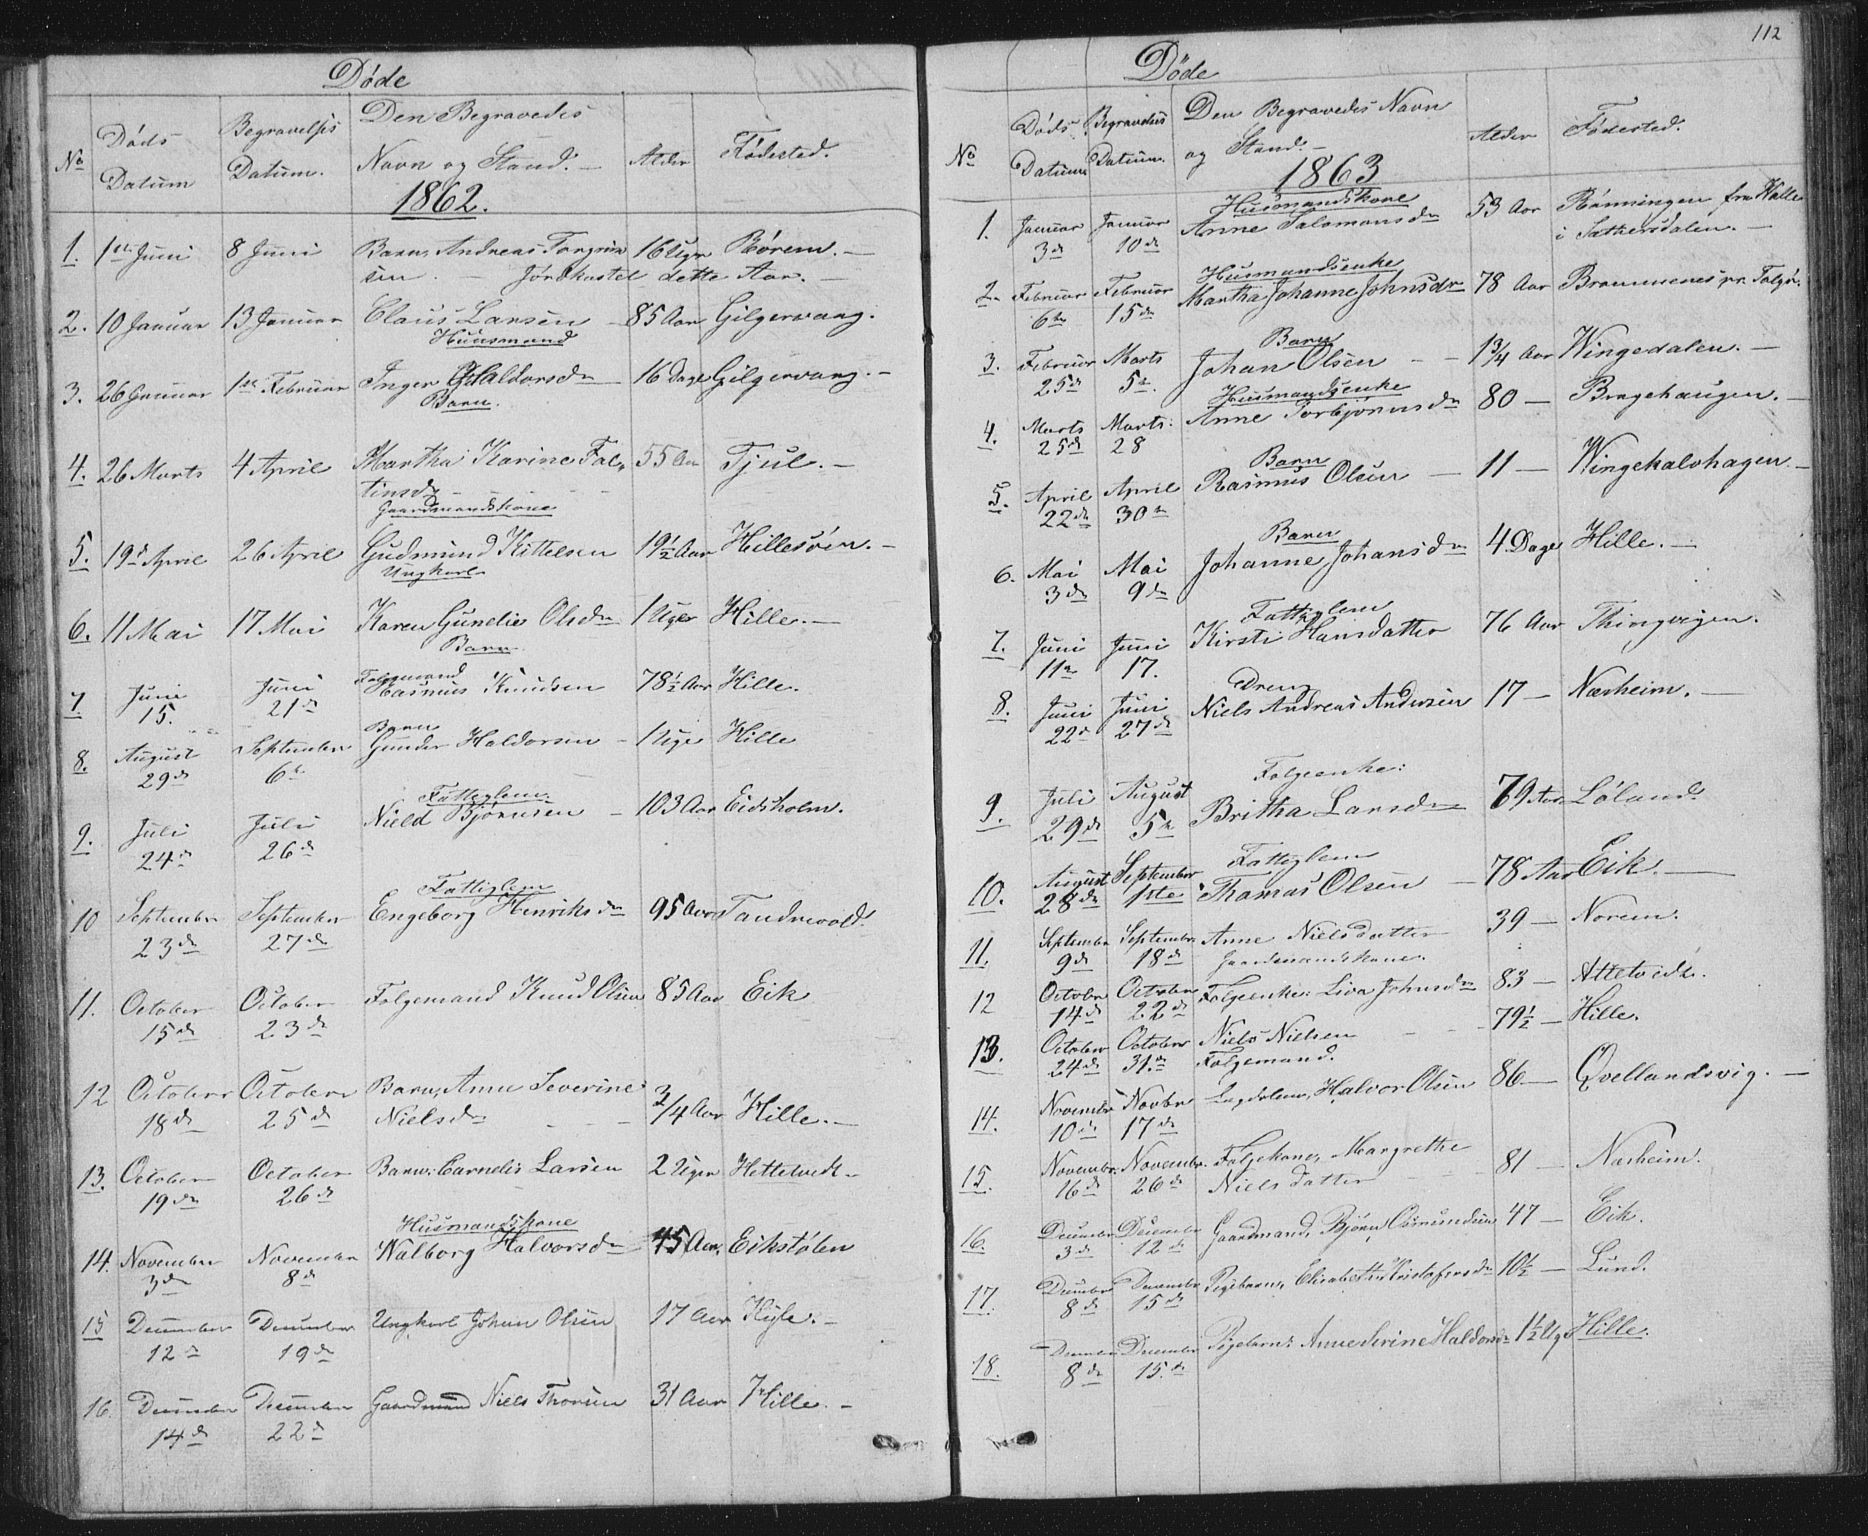 Døde
No
Døds Datum
Begravelses Datum.
Den Begravedes Navn og Stand. -
Alder
Fødested.
1862.
1. 1ste Juni 8 Juni Barn, Andreas Torgrim 16 Uger Børem. -
sen. - Jordkastet dette Aar. -
2. 10 Januar 13 Januar Claus Larsen - 85 Aar Gilgervang.
Huusmand
3. 26 Januar 1ste Februar Inger Haldorsdr 16 Dage Gilgervang. -
Barn.
4. 26 Marts 4 April Martha Karine Fal- 55 Aar Tjul. -
tinsdr - - -
Gaardmandskone
5. 19de April 26 April Gudmund Kittelsen 19½ Aar Hillesøen. -
Ungkarl
6. 11 Mai 17 Mai Karen Gunelie Olsdr 1 Uger Hille. -
Barn.
Folgemand
7. Juni Juni Rasmus Knudsen 78½ Aar Hille.
15. 21de
Barn
8. August September Gunder Haldorsen - 1 Uge Hille
29de 6te
Fattiglem.
9. Juli Juli Nield Bjørnsen - 103 Aar Eidsholm.
24de 26de
Fattiglem
10 September September Engeborg Henriksdr 95 Aar Tandevold.
23de 27de
11. October October Folgemand Knud Olsen 85 Aar Eik
15de 23de
12 October October Barn, Anne Severine
18de 25de Nielsdr - - - 3/4 Aar Hille. -
13. October October Barn: Cornelis Larsen 2 Uger Hettetvedt -
19de 26de
Husmandskone
14. November November Walborg Halvorsdr 45 Aar, Eikstølen
3de 8de
15 December December Ungkarl Johan Olsen 17 Aar Høyle. -
12de 19de
16. December December Gaardmand Niels Thorsen 31 Aar Hille. -
14de 22de
112
Døde
No
Døds Datum
Begravelses Datum.
Den Begravedes Navn og Stand. -
Alder
Fødested.
1863
Husmandskone
1. Januar Januar Anne Salamonsdr 53 Aar Rønningen fra Walle
3de 10de i Sætersdalen. -
Husmandsenke
2. Februar Februar Martha Johanne Johnsdr 78 Aar Brommenes pr. Talgø.
6te 15de
Barn
3. Februar Marts Johan Olsen - - 1¾ Aar Wingedalen. -
25de 5te.
Husmandsenke
4. Marts Marts: Anne Torbjørnsdr 80 - Bragehaugen. -
25de 28
Barn
5. April April Rasmus Olsen - 11 - Wingekalvhagen. -
22de 30te
Barn
6. Mai Mai Johanne Johansdr 4 Dage Hille. -
3de 9de
Fattiglem
7. Juni Juni Kirsti Hansdatter 76 Aar Thingvigen.
11te 17.
Dreng
8. Juni Juni Niels Andreas Andersen 17 - Nærheim. -
22de 27de
Folgeenke:
9. Juli August Britha Larsdr 79 Aar Løland.
29de 5te
Fattiglem
10. August September Thomas Olsen - 78 Aar Eik. -
28de 1ste
11. September September Anne Nielsdatter 39 - Norem.
9de 18de Gaardmandskone.
12 October October Folgeenke: Liva Johnsdr 83 - Attetvedt.
14de 22de
13. October October Niels Nielsen - - 79½ - Hille.
24de 31te Folgemand.
14. November Novbr Lægdslem, Halvor Olsen 86 - Qvellandsvig. -
10de 17de
15. November November Folgekone, Margrethe 81 - Nærheim.
16de 26de Nielsdatter - -
16. December December Gaardmand, Bjørn Osmundsen 47 - Eik.
3de 12te
17. December December Pigebarn, Elisabeth Kristofersdr 10½ - Lund.
8de 15de
18. December December Pigebarn: Anne Serine Haldorsdr 1½ Ug. Hille.
8de 15de